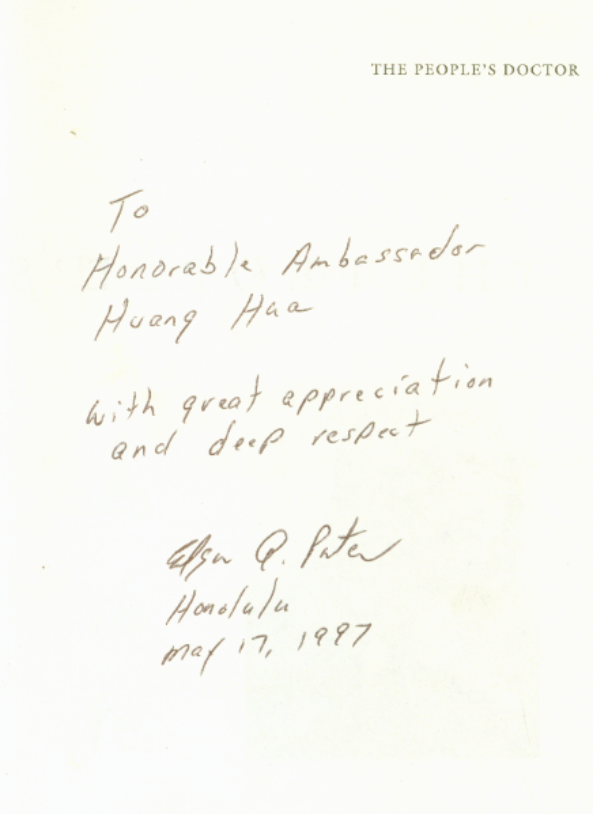 THE PEOPLE'S DOCTOR
To
Honorable Ambassador
Huang Hua
with great appreciation
and deep respect
Edgar A. Porter
Honolulu
May 17, 1997